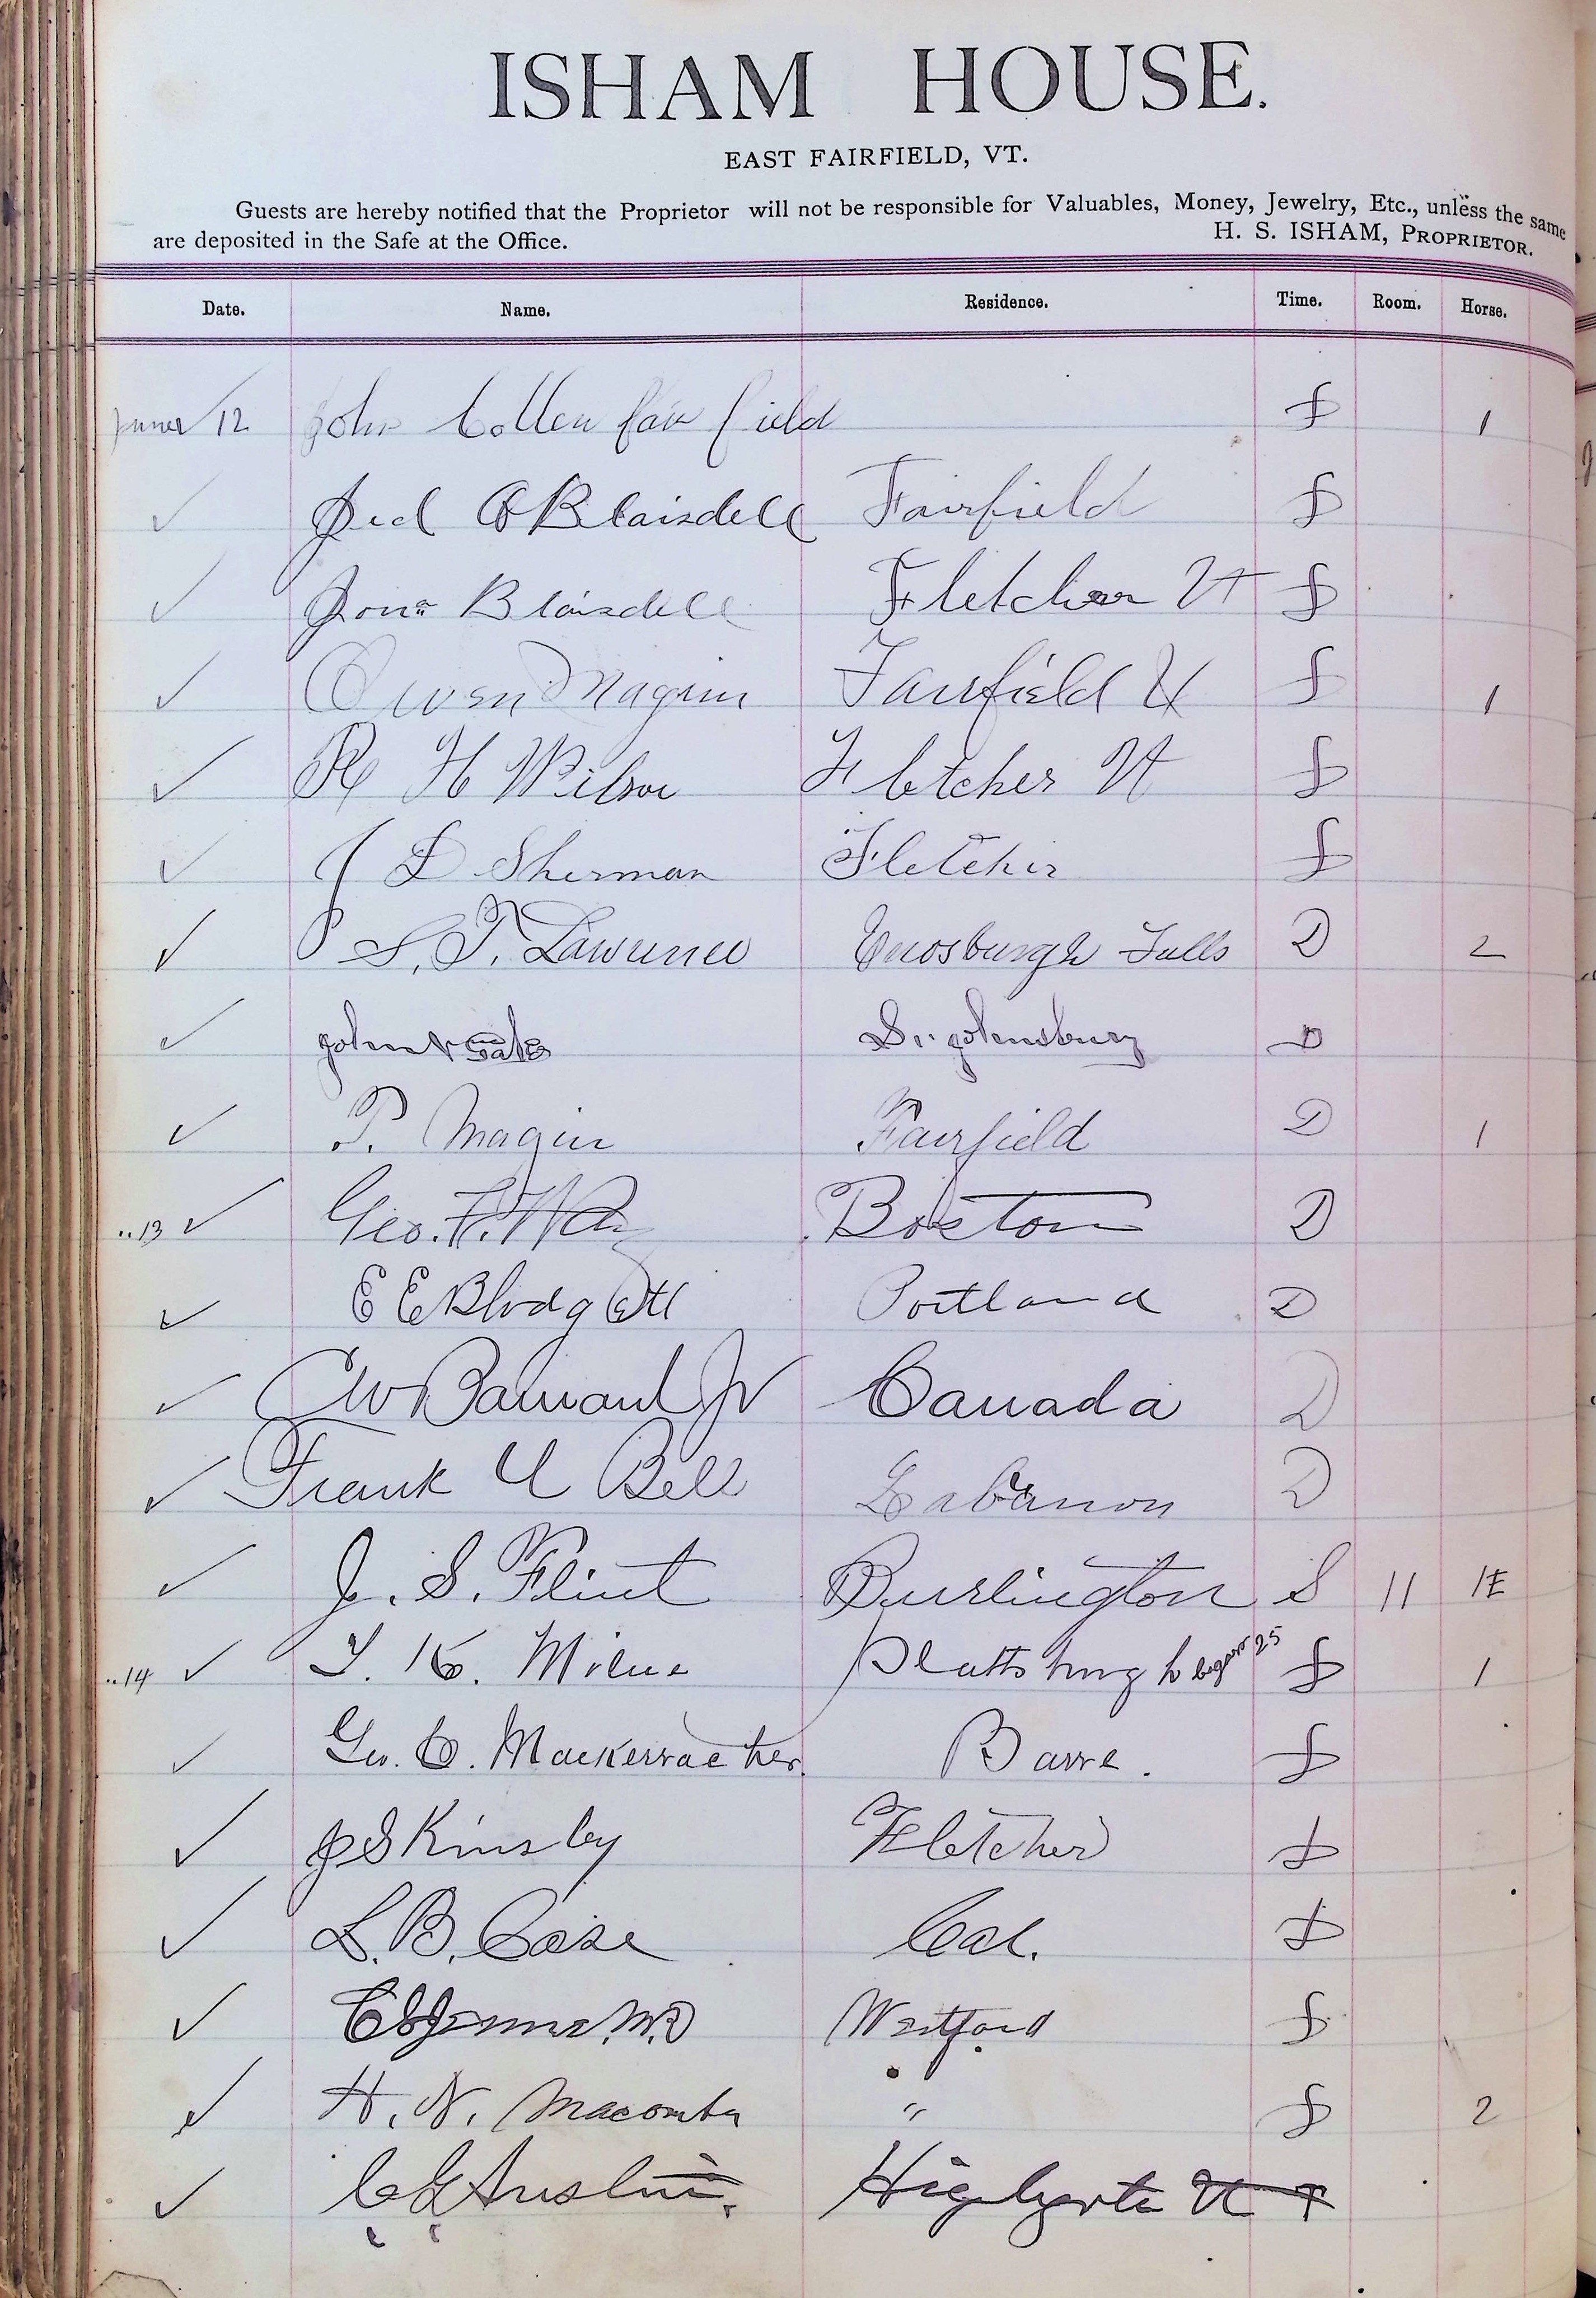 ISHAM HOUSE.
EAST FAIRFIELD, VT.
Guests are hereby notified that the Proprietor will not be responsible for Valuables, Money, Jewelry, Etc., unless the same
are deposited in the Safe at the Office. H. S. ISHAM, PROPRIETOR.
Date. Name. Residence. Time. Room. Horse.
June 12 John Collen fair field 1
Jed A Blaisdell Fairfield
Jona Blaisdell Fletcher Vt
Owen Maginn Fairfield Vt 1
R H Wilson Fletcher Vt
J D Sherman Fletcher
S. T. Lawrence Enosburgh Falls D 2
John Gates St. Johnsbury D
P. Magin Fairfield D 1
.. 13 Geo. F. Boston D
E E Blodgett Portland D
C W Barnard Jr Canada D
Frank U Bell Lebanon D
J. S. Flint Burlington S 11 1E
.. 14 Milne Plattsburgh 25 1
Geo. C. Mackerracher Barre.
J S Kinsley Fletcher
L. B. Case Cal.
M.D Westford
H. N. Macomber " 2
C G Austin. Highgate Vt